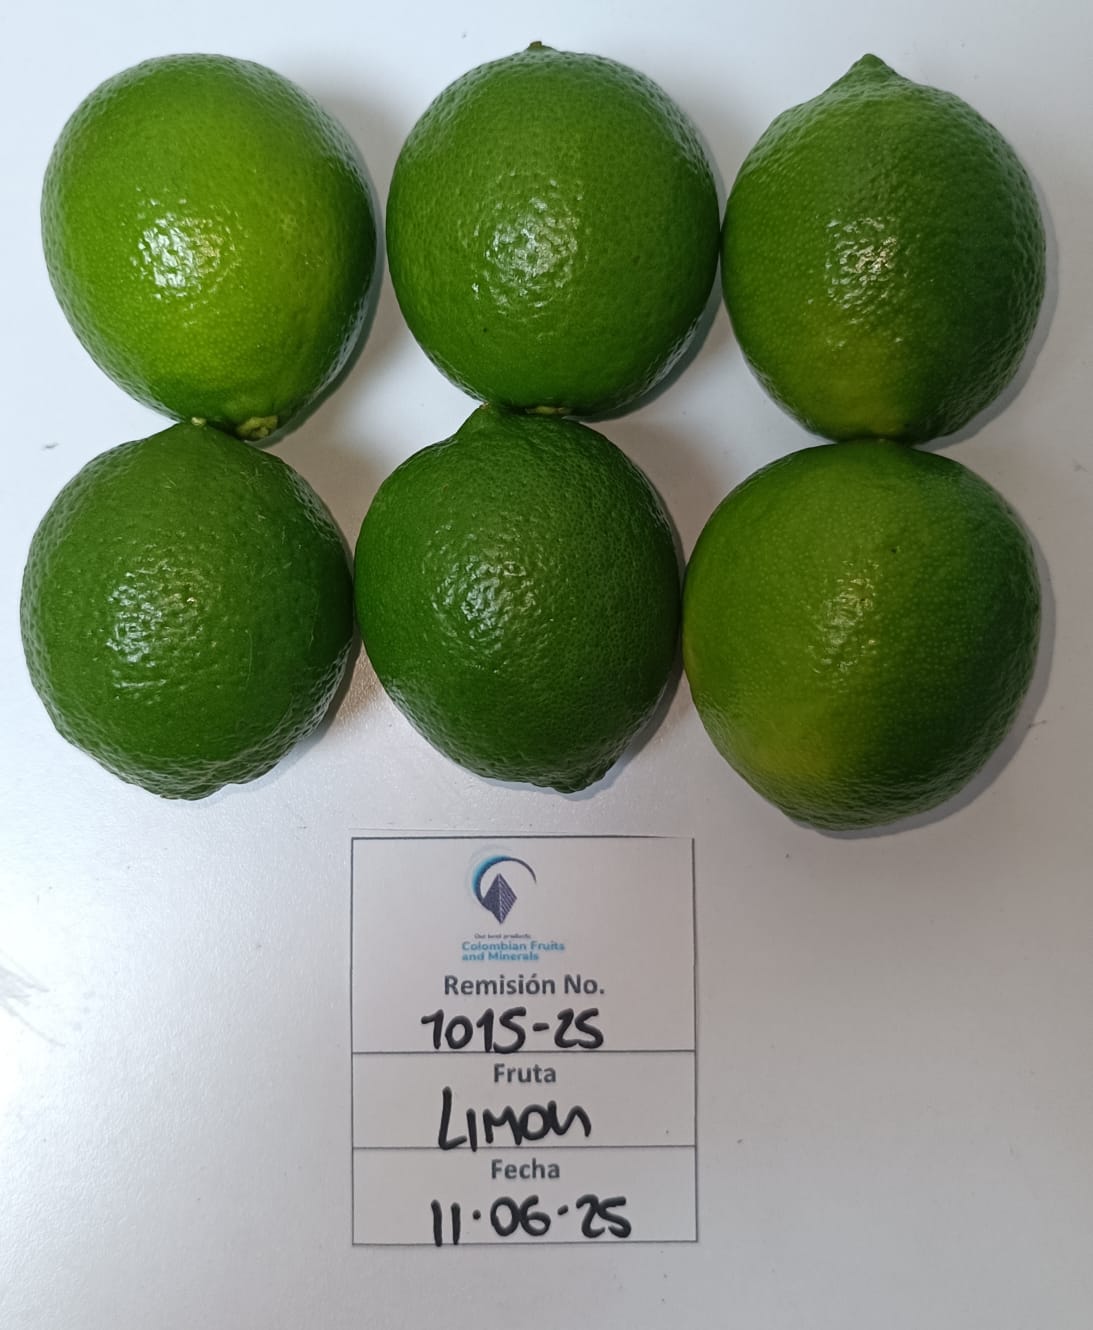 Our best products
Colombian Fruits
and Minerals
Remisión No.
1015-25
Fruta
LIMON
Fecha
11·06·25